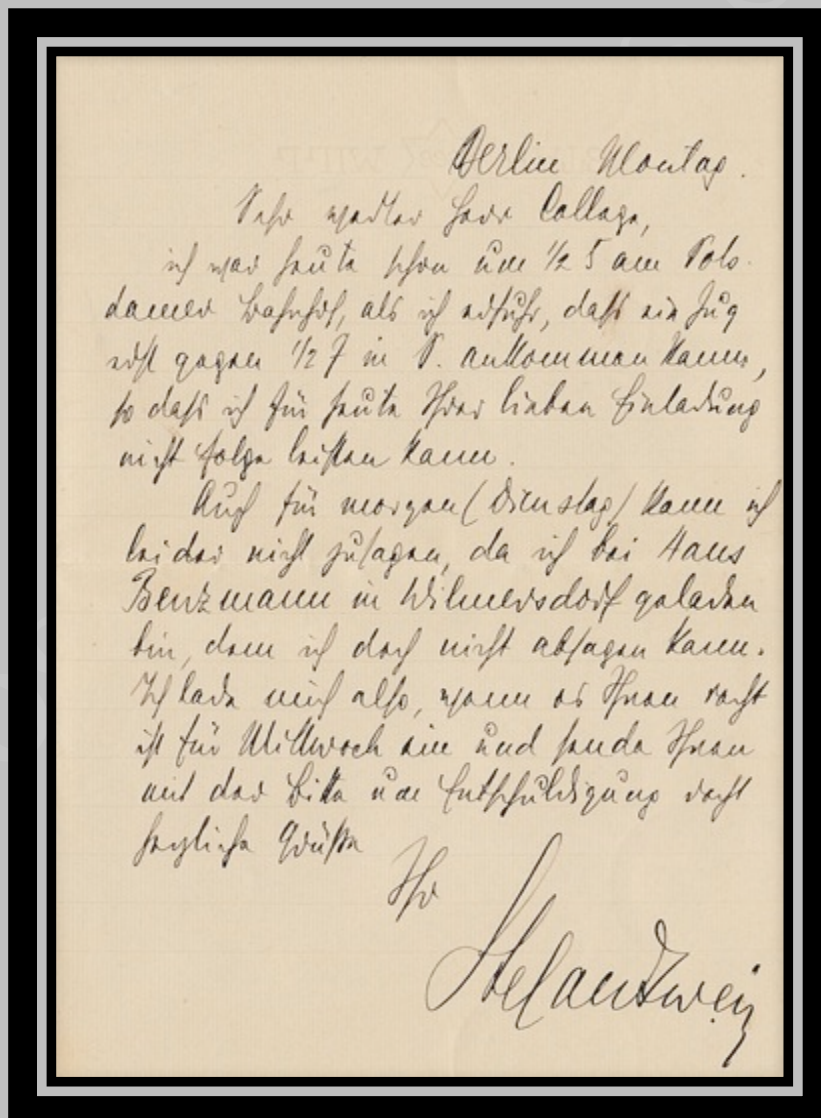 Berlin Montag.
Sehr werther Herr College,
ich war heute schon um ½ 5 am Pots-
damer Bahnhof, als ich erfuhr, daß ein Zug
erst gegen ½ 7 in P. ankommen kann,
so daß ich für heute Ihrer lieben Einladung
nicht folge leisten kann.
Auch für morgen (Dienstag) kann ich
leider nicht zusagen, da ich bei Hans
Benzmann in Wilmersdorf geladen
bin, dem ich doch nicht absagen kann.
Ich lade mich also, wenn es Ihnen recht
ist für Mittwoch ein und sende Ihnen
mit der Bitte um Entschuldigung recht
herzliche Grüße
Ihr
Stefan Zweig